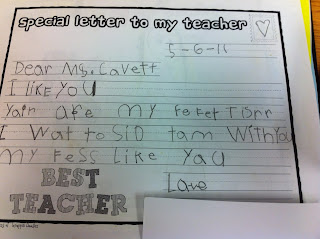 special letter to my teacher
5-6-11
Dear Ms. Lavett
I like you
Yair are my fefet Tisrr
I Wat to SID tam With You
My Fess Like You
BEST
TEACHER
Love